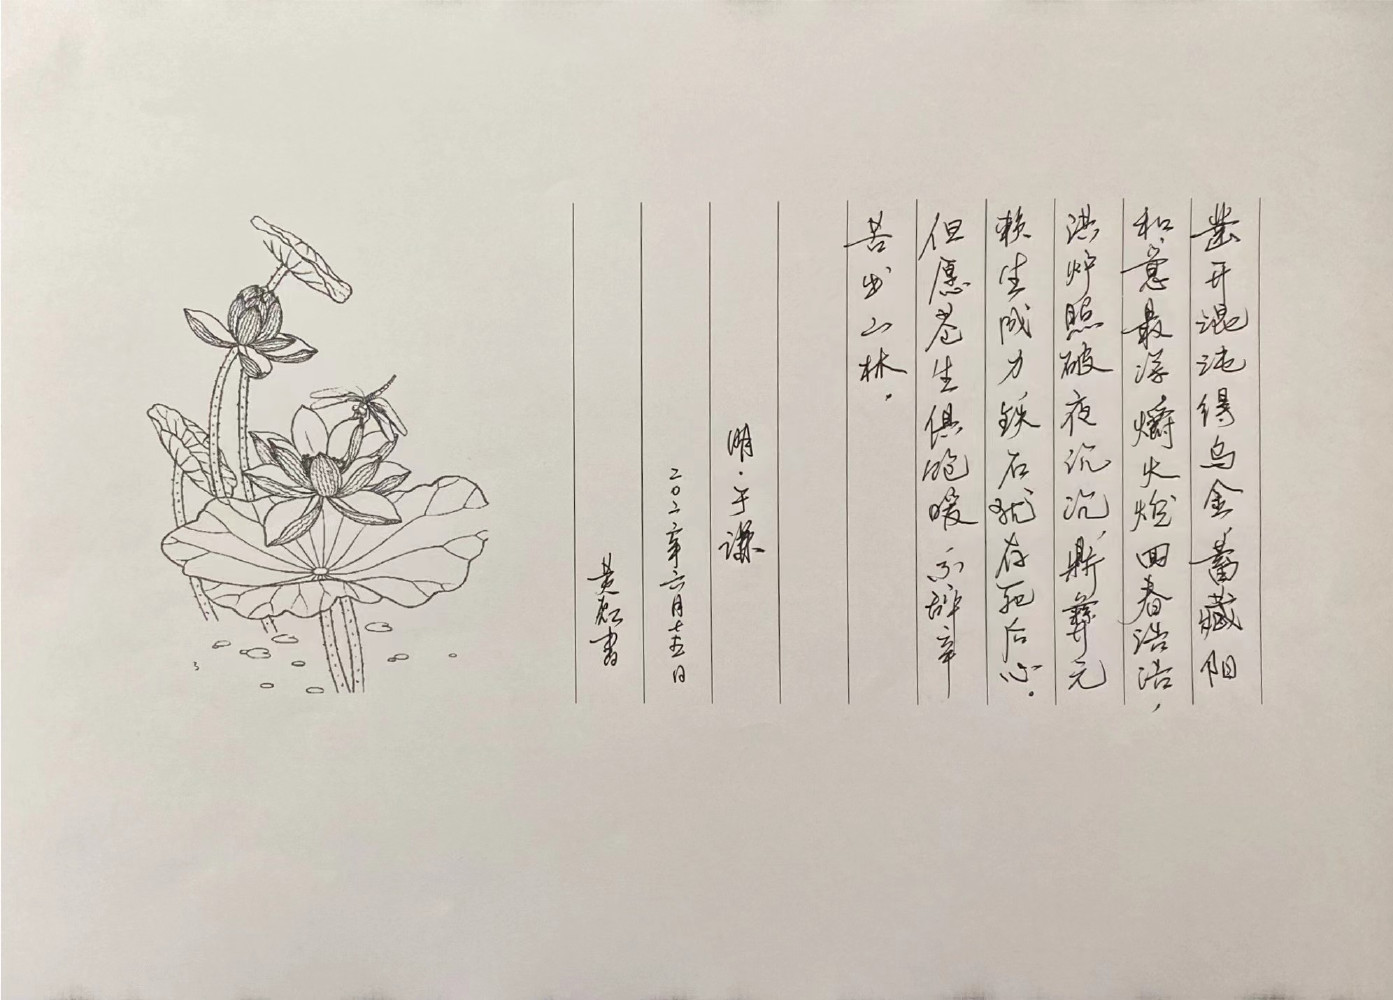 凿开混沌得乌金,蓄藏阳
和意最深爝火燃回春浩浩,
洪炉照破夜沉沉,鼎彝元
赖生成力铁石犹存死后心.
但愿苍生俱饱暖不辞辛
苦出山林.
明·于谦
二〇二年六月十五日
黄书